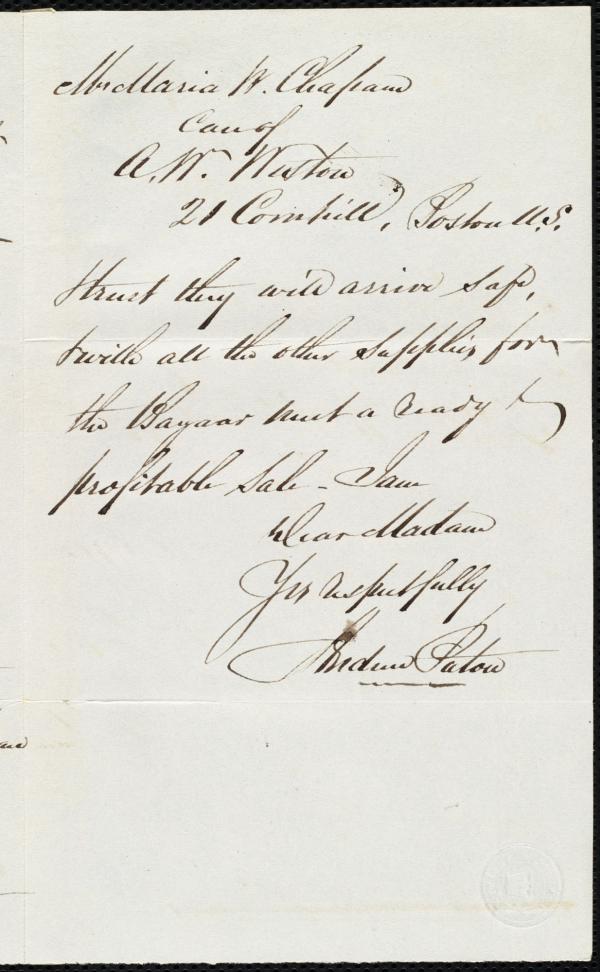 Mrs Maria W. Chapman
Care of
A. W. Weston
21 Cornhill, Boston U.S.
I trust they will arrive safe,
& with all the other supplies for
the Bazaar meet a ready &
profitable sale - I am
Dear Madam
Yrs respectfully
Andrew Paton